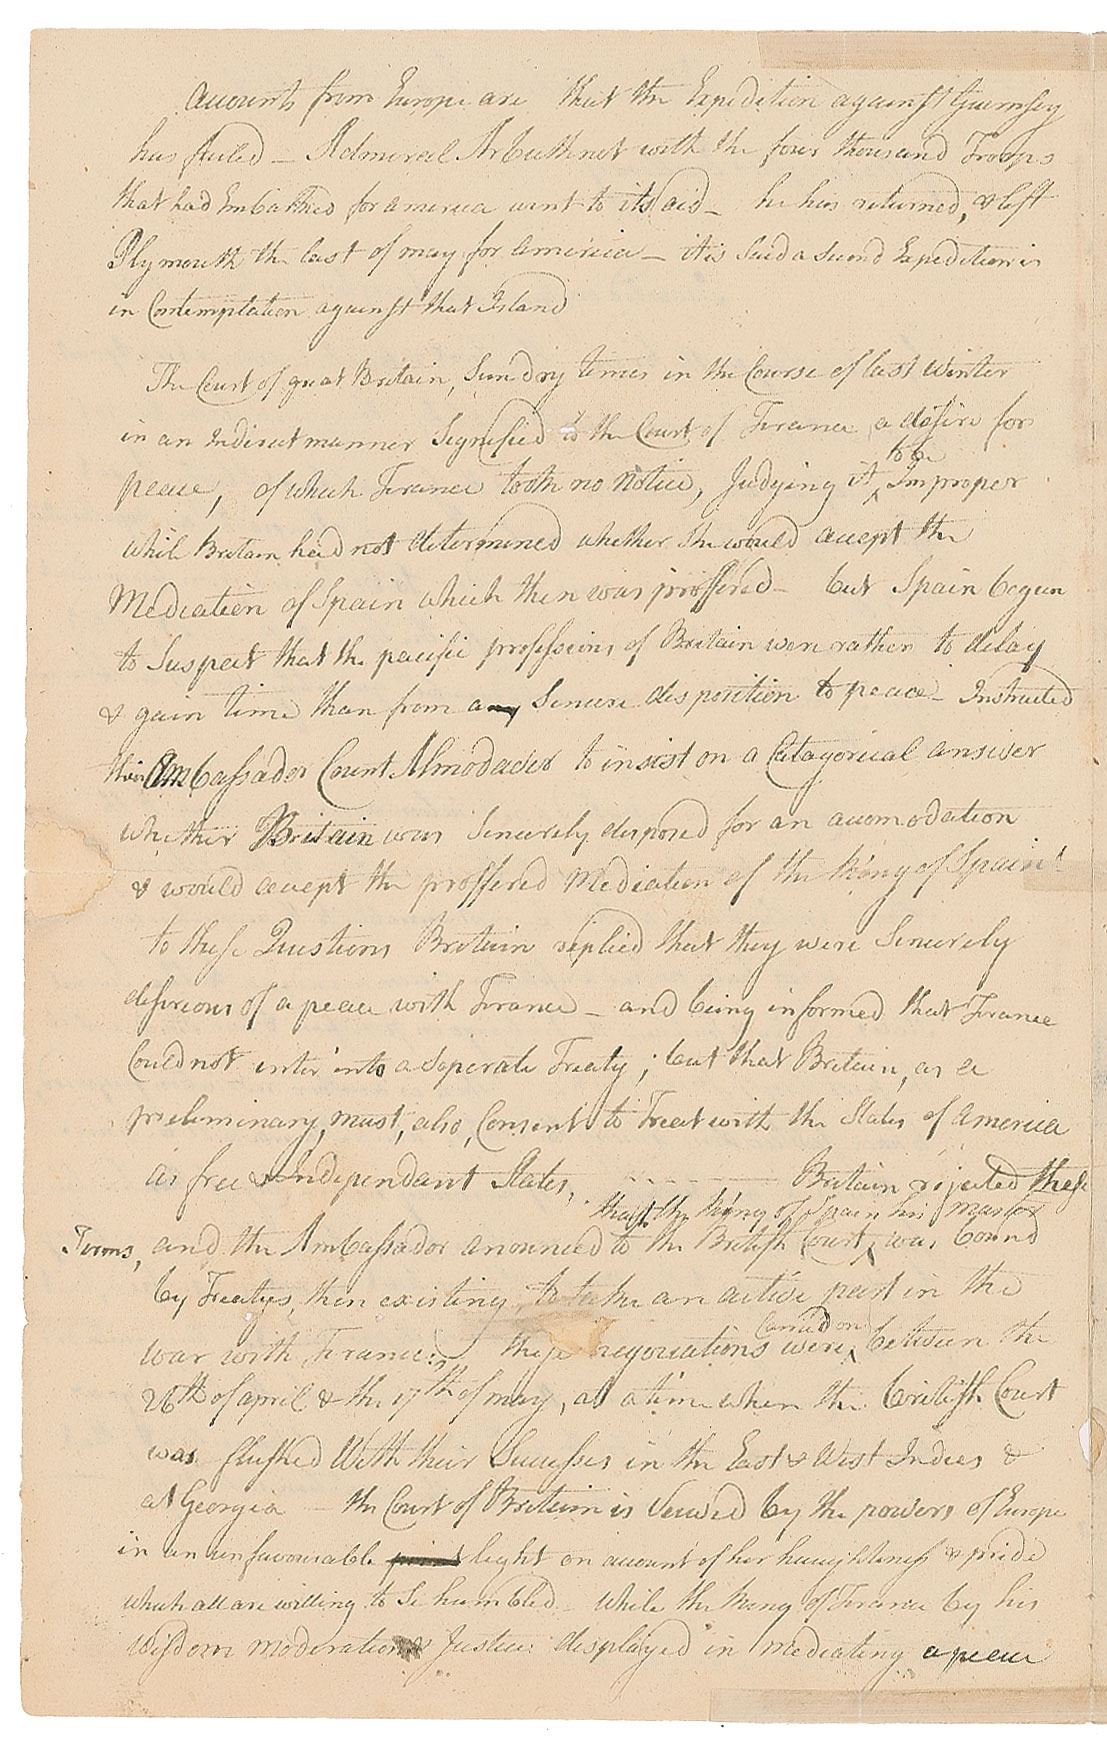 Accounts from Europe are that the Expedition against Guernsey
has failed – Admiral Arbuthnet with the four thousand Troops
that had Embarked for America went to its aid – he has returned, & left
Plymouth the last of may for America – it is Said a second Expedition is
in Contemplation against that Island
The Court of great Britain, Sundry times in the Course of last winter
in an Indirect manner Signified to the Court of France a desire for
to be
peace, of which France took no notice, Judging it ‸ Improper
while Britain had not determined whether She would accept the
Mediation of Spain which then was proffered – but Spain began
to Suspect that the pacific professions of Britain were rather to delay
& gain time than from a Sincere disposition to peace – Instructed
their Ambassador Count Almodaver to insist on a Catagorical answer
whether Britain was Sincerely disposed for an accomodation
& would accept the proffered Mediation of the King of Spain!
to these Questions Britain replied that they were Sincerely
desireous of a peace with France – and being informed that France
Could not enter into a Seperate Treaty; but that Britain, as a
preliminary, must, also, Consent to Treat with the States of America
as free & Independant States, - - - - - - - Britain rejected these
that the King of Spain his master
Terms, and the Ambassador anounced to the British Court ‸ was bound
by Treatys, then existing, to take an active part in the
Carried on
war with France: these negociations were ‸ between the
26th of april & the 17th of may, at a time when the british Court
was flushed With their Successes in the East & West Indies &
at Georgia – the Court of Britain is Viewed by the powers of Europe
in an unfavourable light on account of her haughtiness & pride
which all are willing to Se humbled – while the King of France by his
Wisdom moderation & Justice displayed in mediating a peace